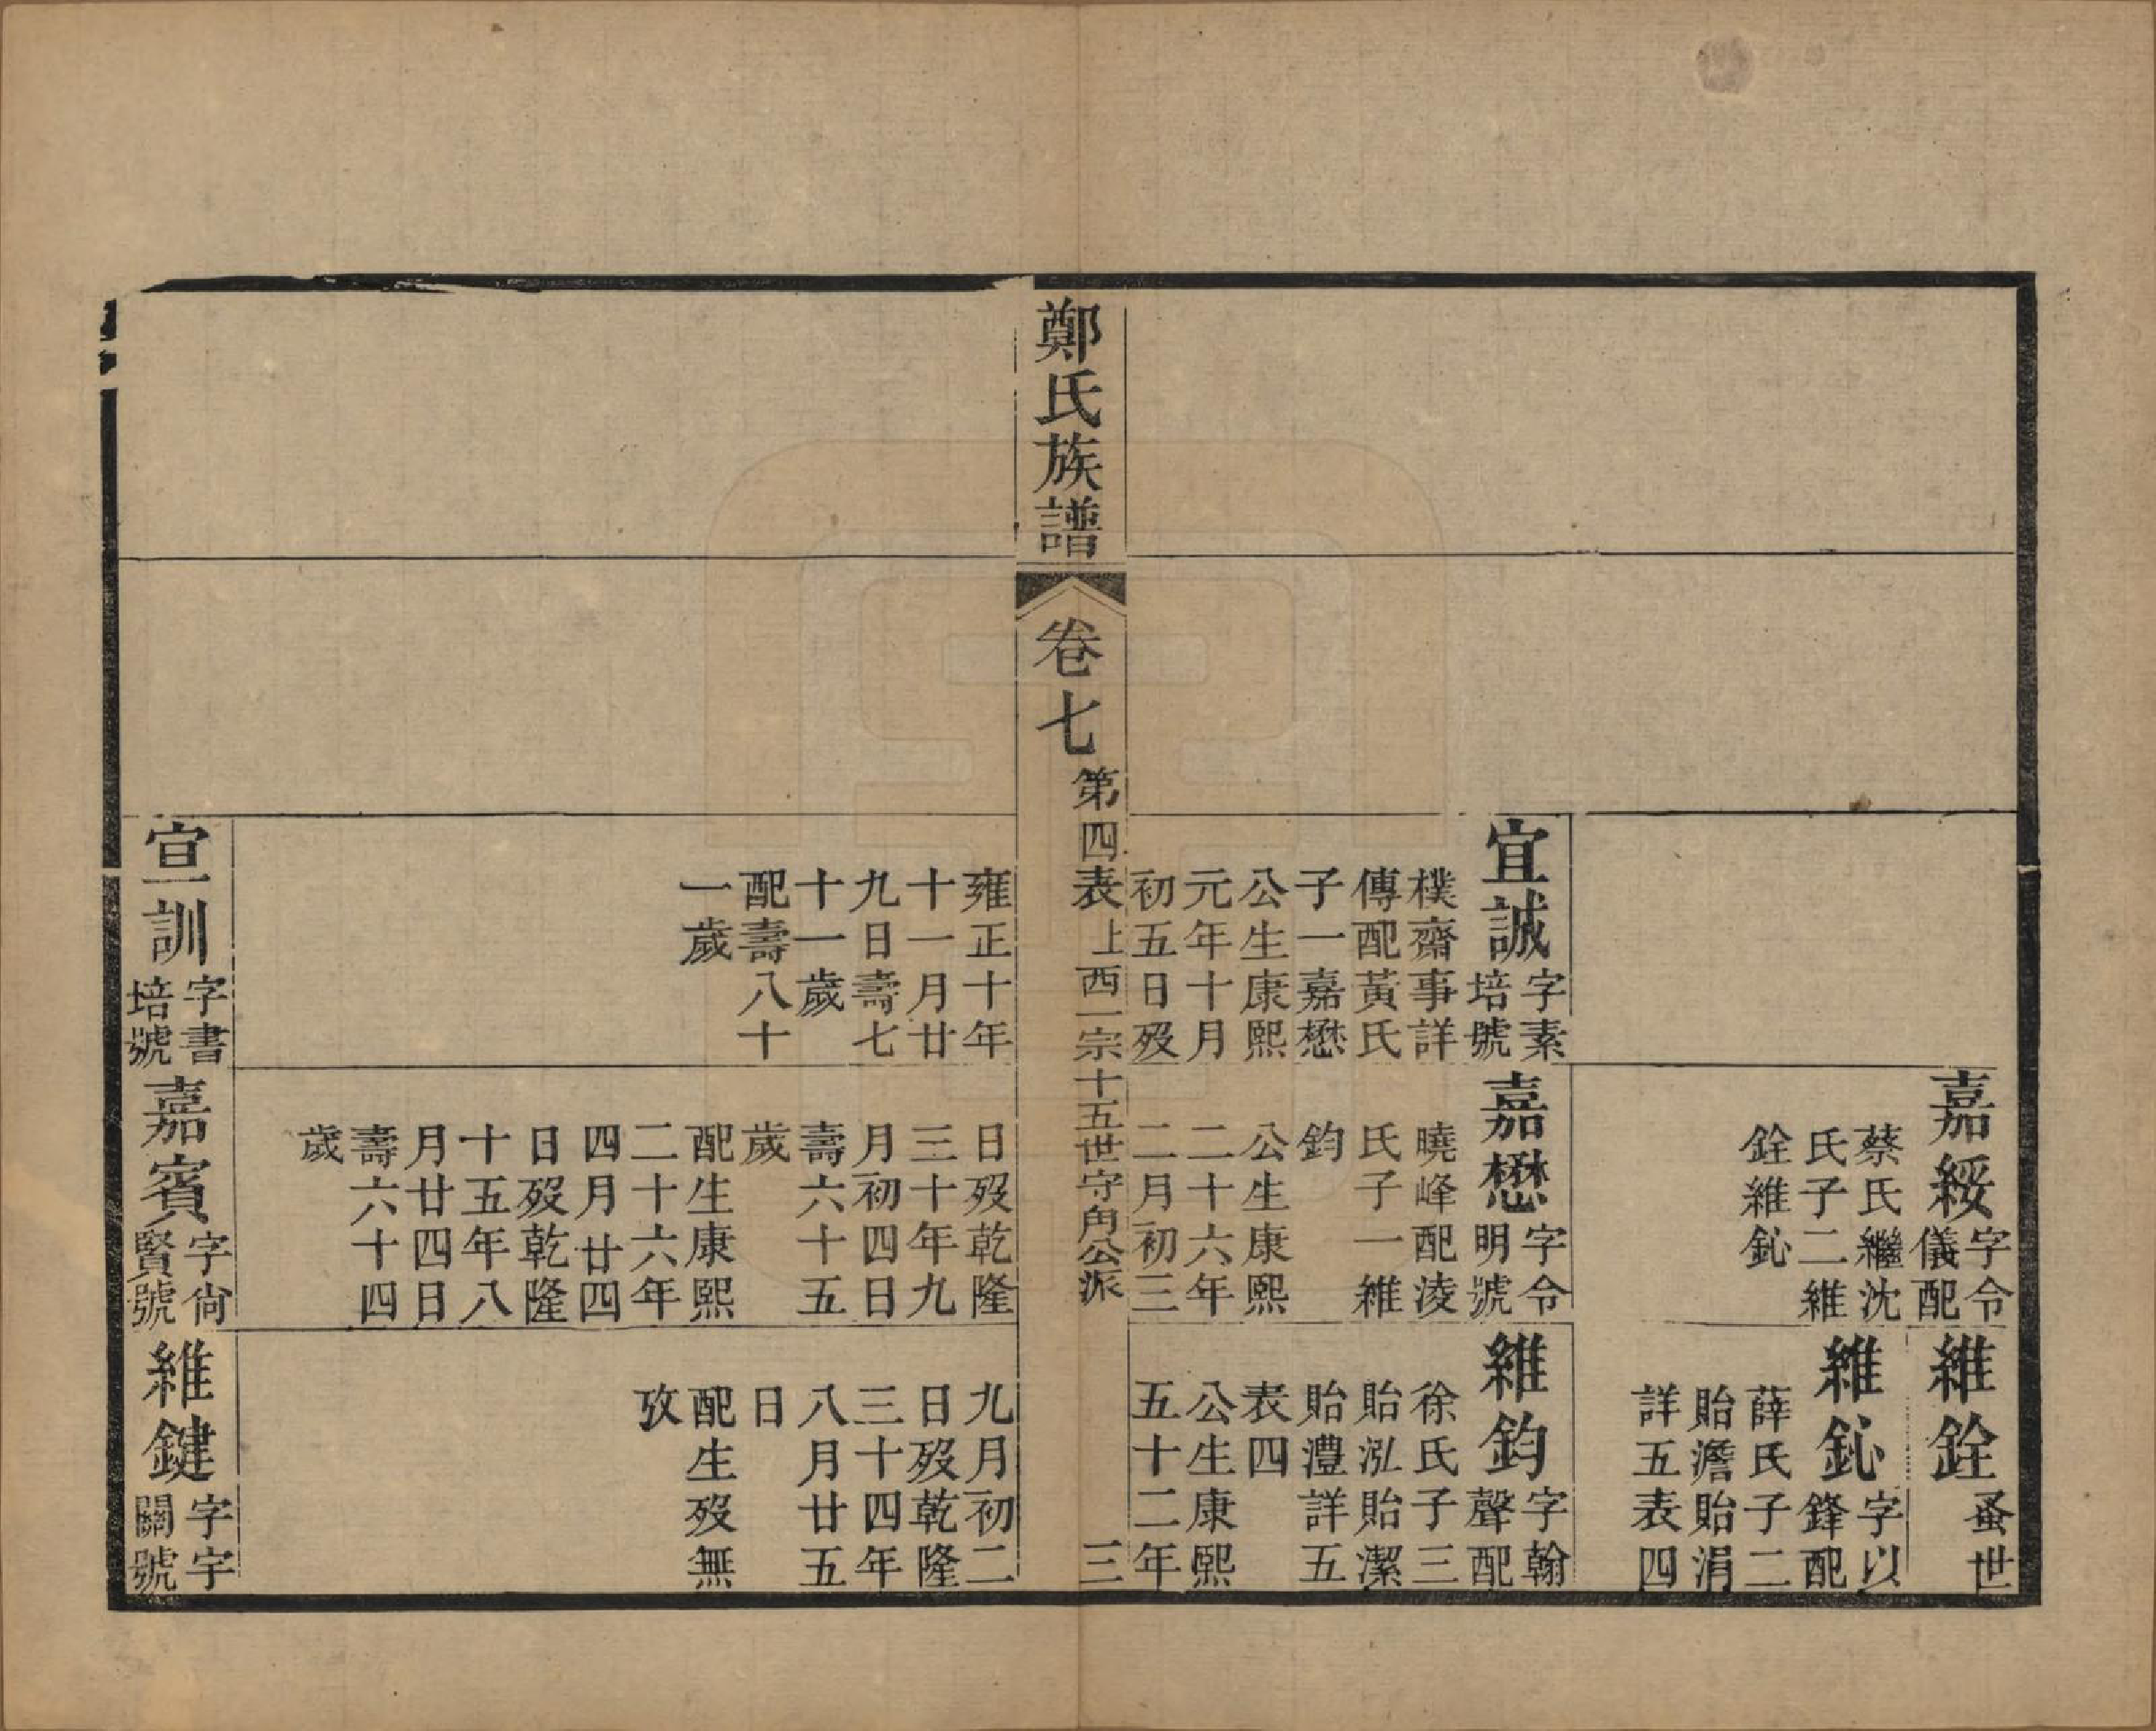 嘉綏字令
儀配
蔡氏繼沈
氏子二維
銓維鈊
維銓蚤世
維鈊字以
鋒配
薛氏子二
貽澹貽涓
詳五表四
宜誠字素
培號
樸齋事詳
傳配黃氏
子一嘉懋
公生康熙
元年十月
初五日歿
嘉懋字令
明號
曉峰配淩
氏子一維
鈞
公生康熙
二十六年
二月初三
維鈞字翰
聲配
徐氏子三
貽泓貽潔
貽澧詳五
表四
公生康熙
五十二年
鄭氏族譜
卷七
第四表上西一宗十五世守角公派
三
雍正十年
十一月廿
九日壽七
十一歲
配壽八十
一歲
日歿乾隆
三十年九
月初四日
壽六十五
歲
配生康熙
二十六年
四月廿四
日歿乾隆
十五年八
月廿四日
壽六十四
歲
九月初二
日歿乾隆
三十四年
八月廿五
日
配生歿無
攷
宣訓字書
培號
嘉賓字尙
賢號
維鍵字宇
關號